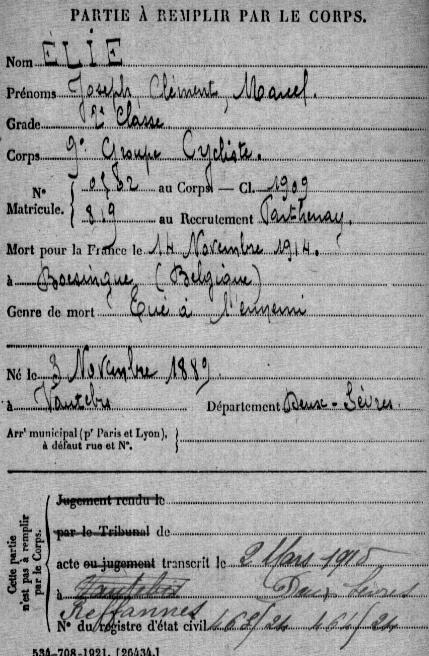 PARTIE À REMPLIR PAR LE CORPS.
Nom ÉLIE
Prénoms Joseph, Clément, Marcel.
Grade 2e Classe
Corps 9e Groupe Cycliste.
N° 0782 au Corps — Cl. 1909
Matricule. 819 au Recrutement Parthenay.
Mort pour la France le 14 Novembre 1914.
à Boesingue (Belgique)
Genre de mort Tué à l'ennemi
Né le 3 Novembre 1889
à Vautebis Département Deux-Sèvres
Arrt municipal (pr Paris et Lyon),
à défaut rue et N°.
Cette partie n'est pas à remplir par le Corps.
Jugement rendu le
par le Tribunal de
acte ou jugement transcrit le 2 Mars 1915
à Vautebis Deux Sèvres
Reffannes
N° du registre d'état civil 162/24
534-708-1921. [26434.]